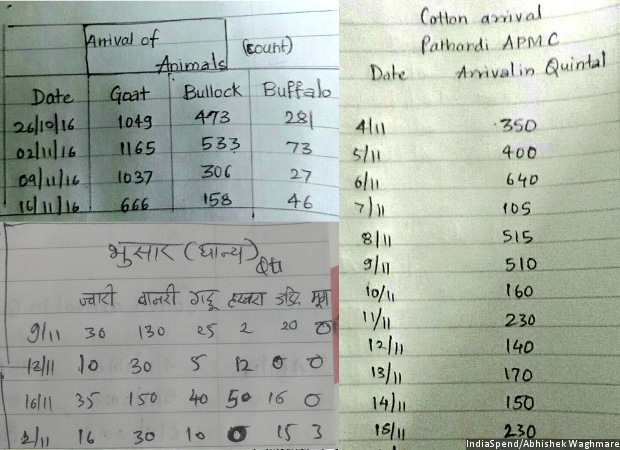 Arrival of
Animals (count)
Date Goat Bullock Buffalo
26/10/16 1049 473 281
02/11/16 1165 533 73
09/11/16 1037 306 27
16/11/16 666 158 46
भुसार (धान्य) Qtl
ज्वारी बाजरी गहू हरभरा उडि. मूग
9/11 30 130 25 2 20 0
12/11 10 30 5 12 0 0
16/11 35 150 40 50 16 0
2/11 16 30 10 0 15 3
Cotton arrival
Pathardi APMC
Date Arrival in Quintal
4/11 350
5/11 400
6/11 640
7/11 105
8/11 515
9/11 510
10/11 160
11/11 230
12/11 140
13/11 170
14/11 150
15/11 230
IndiaSpend/Abhishek Waghmare